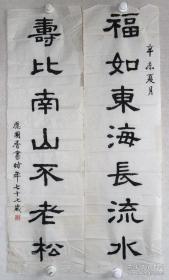 辛未夏月
福如東海長流水
壽比南山不老松
國香書時年七十七歲